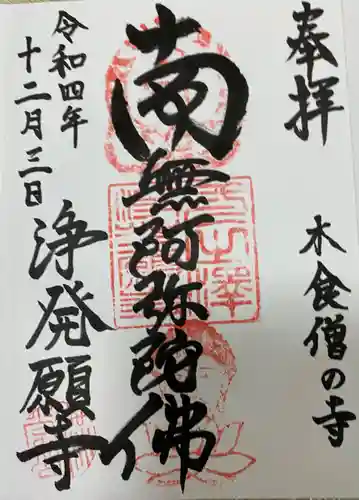 奉拝
木食僧の寺
南無阿弥陀佛
令和四年
十二月三日
浄発願寺